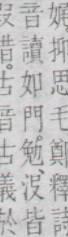 頻抑思毛鄭釋詩
音讀如門勉沒皆
叚借古音古義於